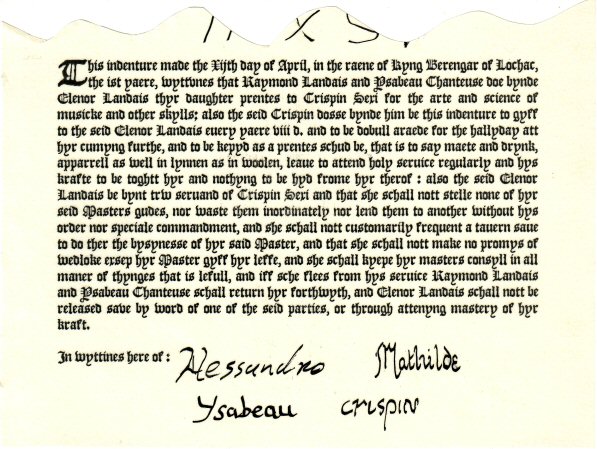 This indenture made the Xijth day of April, in the raene of Kyng Berengar of Lochac,
the ist yaere, wyttvnes that Raymond Landais and Ysabeau Chanteuse doe bynde
Elenor Landais thyr daughter prentes to Crispin Sexi for the arte and science of
musicke and other skylls; also the seid Crispin dosse bynde him be this indenture to gyff
to the seid Elenor Landais euery yaere viii d. and to be dobull araede for the hallyday att
hyr cumyng furthe, and to be kepyd as a prentes schud be, that is to say maete and drynk,
apparrell as well in lynnen as in woolen, leaue to attend holy seruice regularly and hys
krafte to be toghtt hyr and nothyng to be hyd frome hyr therof : also the seid Elenor
Landais be bynt trw seruand of Crispin Sexi and that she schall nott stelle none of hyr
seid Masters gudes, nor waste them inordinately nor lend them to another without hys
order nor speciale commandment, and she schall nott customarily frequent a tauern saue
to do ther the bysynesse of hyr said Master, and that she schall nott make no promys of
wedloke exsep hyr Master gyff hyr leffe, and she schall kyepe hyr masters consyll in all
maner of thynges that is lefull, and iff sche flees from hys seruice Raymond Landais
and Ysabeau Chanteuse schall return hyr forthwyth, and Elenor Landais schall nott be
released save by word of one of the seid parties, or through attenyng mastery of hyr
kraft.
In wyttines here of :
Alessandro Mathilde
Ysabeau Crispin